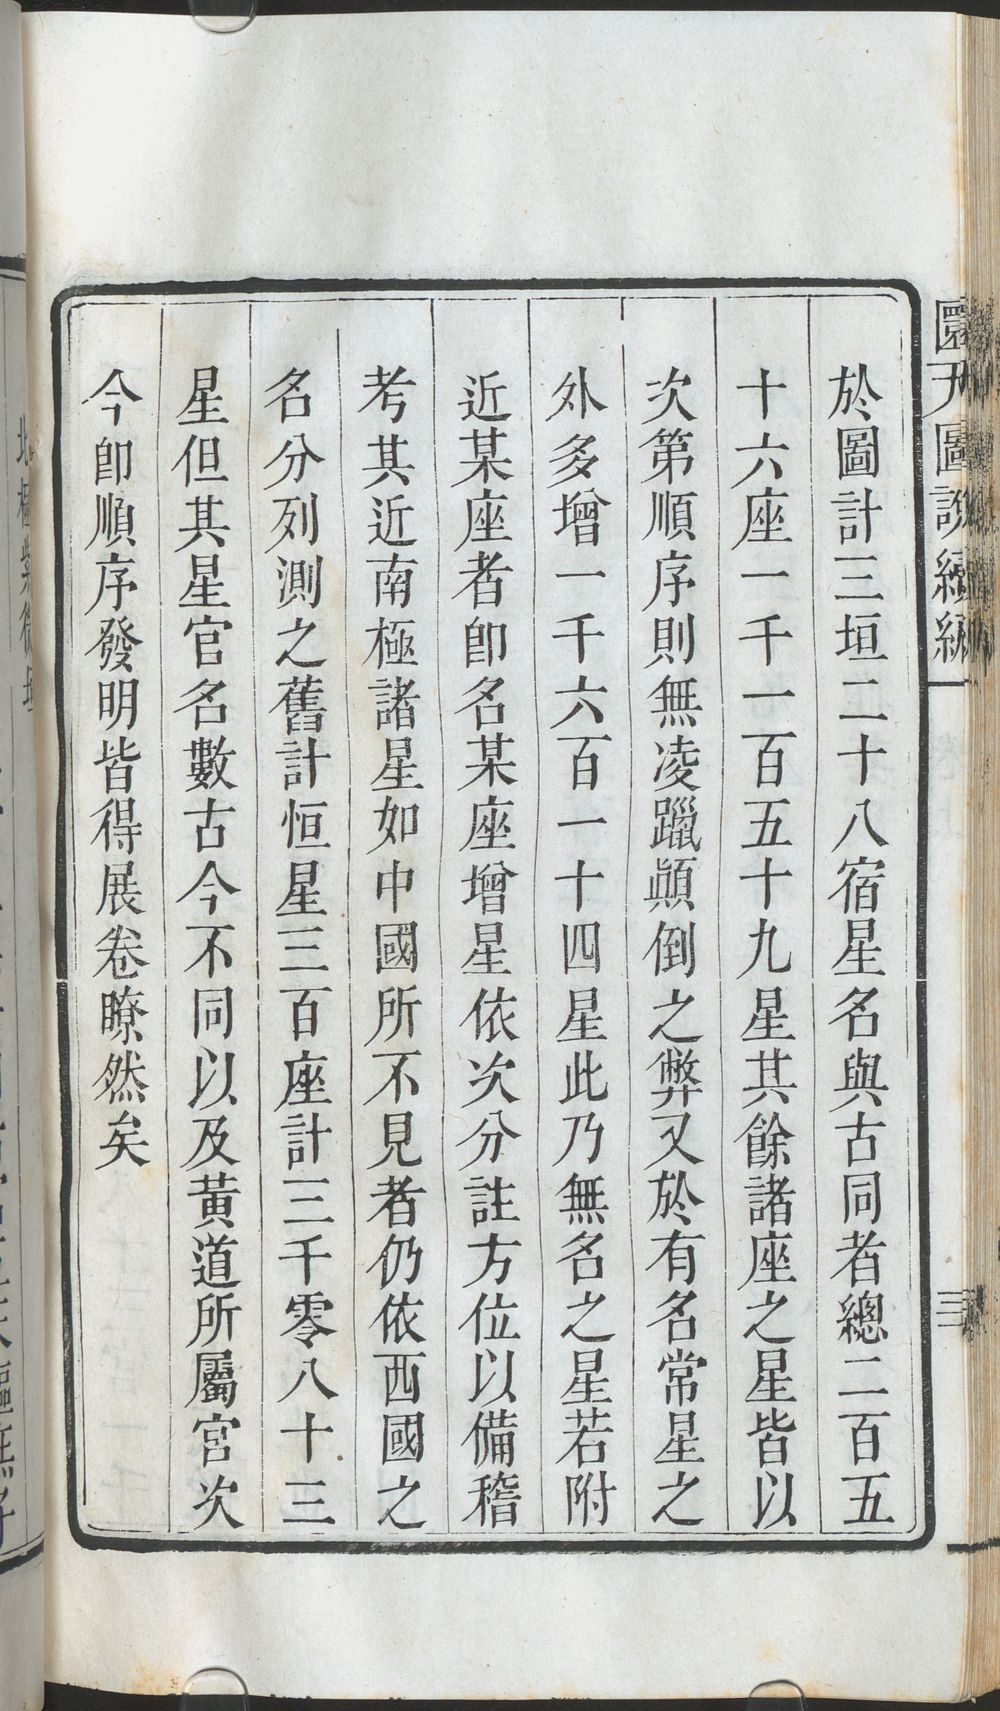 於圖計三垣二十八宿星名與古同者總二百五
十六座一千一百五十九星其餘諸座之星皆以
次第順序則無凌躐顚倒之弊又於有名常星之
外多增一千六百一十四星此乃無名之星若附
近某座者卽名某座增星依次分註方位以備稽
考其近南極諸星如中國所不見者仍依西國之
名分列測之舊計恒星三百座計三千零八十三
星但其星官名數古今不同以及黃道所屬宮次
今卽順序發明皆得展卷瞭然矣
圜天圖說續編
三